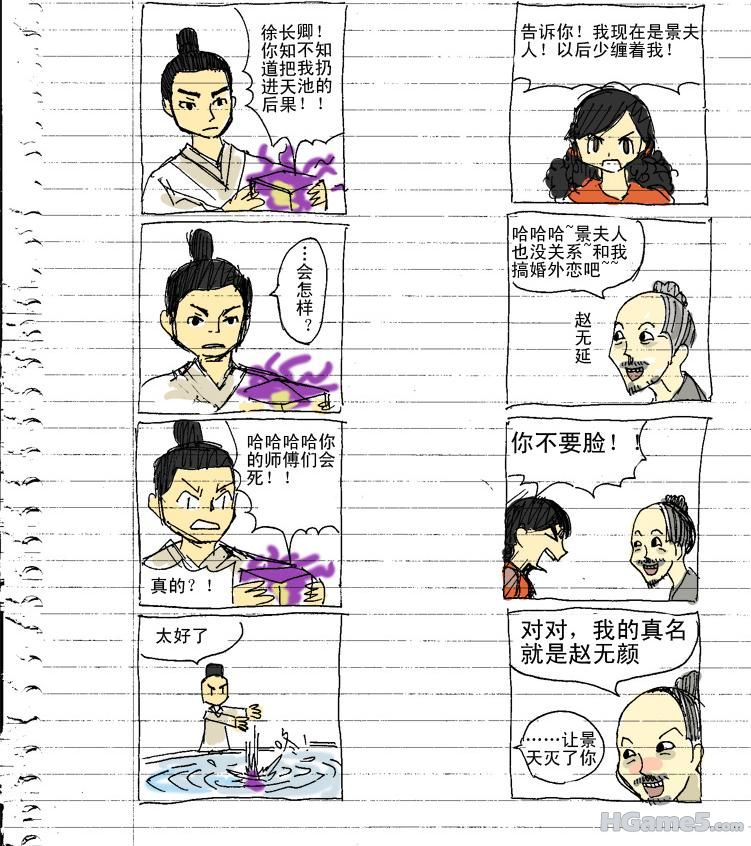 徐长卿！
你知不知
道把我扔
进天池的
后果！！
…会怎样？
哈哈哈哈你
的师傅们会
死！！
真的？！
太好了
咚！
告诉你！我现在是景夫
人！以后少缠着我！
哈哈哈~景夫人
也没关系~和我
搞婚外恋吧~~
赵无延
你不要脸！！
对对，我的真名
就是赵无颜
……让景
天灭了你
HGame5.com